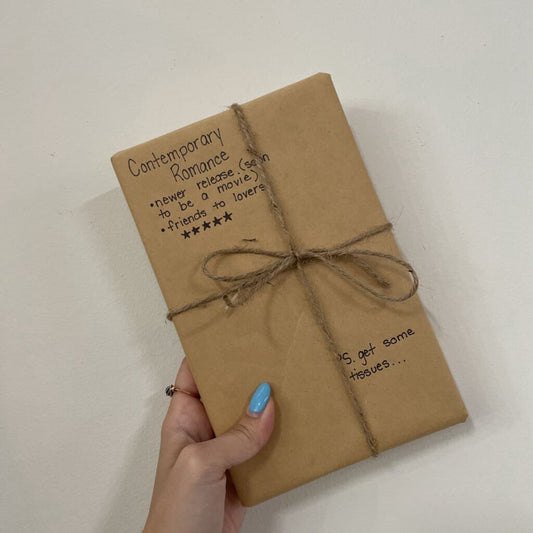 Contemporary
Romance
•newer release (soon
to be a movie)
•friends to lovers
★★★★★
P.S. get some
tissues...